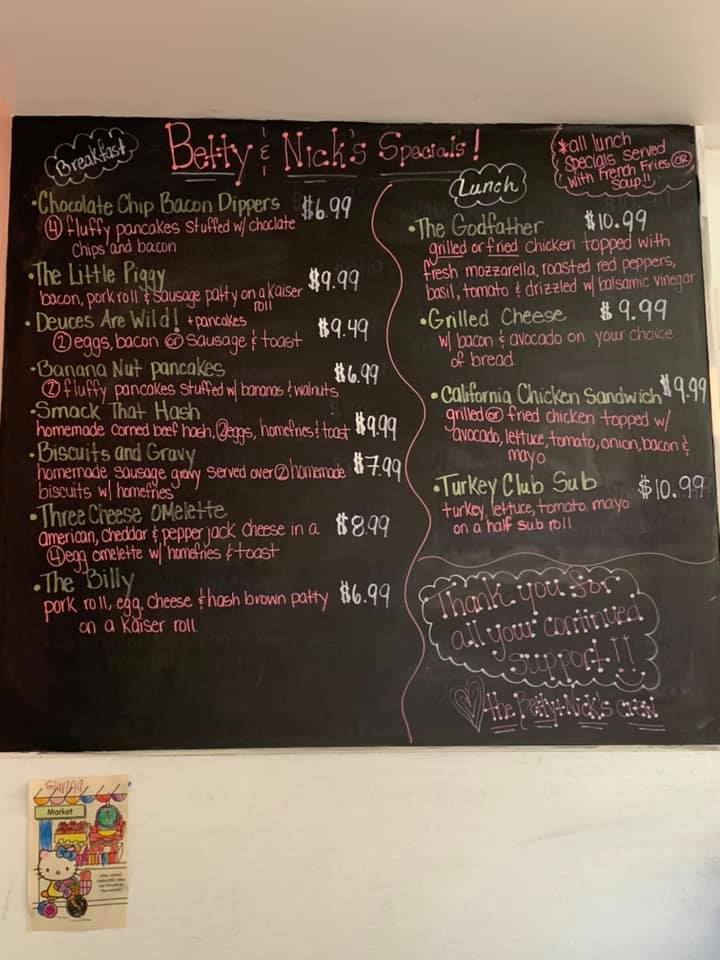 Betty & Nick's Specials!
Breakfast
•Chocolate Chip Bacon Dippers $6.99
④ fluffy pancakes stuffed w/ choclate
chips and bacon
•The Little Piggy $9.99
bacon, pork roll & sausage patty on a Kaiser
roll
•Deuces Are Wild! + pancakes $9.49
② eggs, bacon or sausage & toast
•Banana Nut pancakes $6.99
② fluffy pancakes stuffed w/ bananas & walnuts
•Smack That Hash
homemade corned beef hash, ② eggs, homefries & toast $9.99
•Biscuits and Gravy $7.99
homemade sausage gravy served over ② homemade
biscuits w/ homefries
•Three Cheese Omelette $8.99
american, cheddar & pepper jack cheese in a
④ egg omelette w/ homefries & toast
•The Billy $6.99
pork roll, egg, cheese & hash brown patty
on a Kaiser roll
Lunch
*all lunch
specials served
with French Fries or
Soup!!
•The Godfather $10.99
grilled or fried chicken topped with
fresh mozzarella, roasted red peppers,
basil, tomato & drizzled w/ balsamic vinegar
•Grilled Cheese $9.99
w/ bacon & avocado on your choice
of bread
•California Chicken Sandwich $9.99
grilled or fried chicken topped w/
avocado, lettuce, tomato, onion, bacon &
mayo
•Turkey Club Sub $10.99
turkey, lettuce, tomato, mayo
on a half sub roll
Thank you for
all your continued
support!!
the Betty + Nick's crew
Market